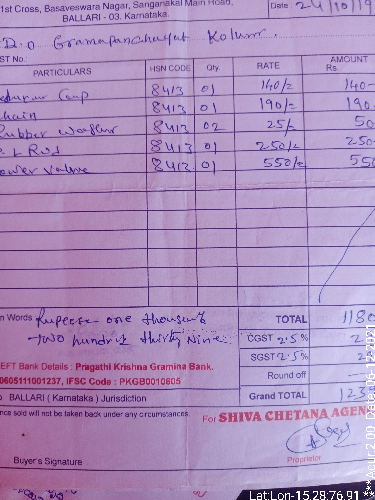 1st Cross, Basaveswara Nagar, Sanganakal Main Road,
BALLARI - 03. Karnataka.
Date : 24/10/19
Gramapanchayat Kolur
ST No.:
PARTICULARS HSN CODE Qty. RATE AMOUNT Rs.
Cap 8413 01 140/- 140-
chain 8413 01 190/- 190-
Rubber washer 8413 02 25/- 50
Rod 8413 01 250/- 250-
lower valve 8413 01 550/- 550
n Words Rupees one thousand TOTAL 1180
two hundred thirty Nine CGST 2.5% 2
SGST 2.5% 2
EFT Bank Details : Pragathi Krishna Gramina Bank. Round off
0605111001237, IFSC Code : PKGB0010605 Grand TOTAL 123
o BALLARI ( Karnataka ) Jurisdiction
nce sold will not be taken back under any circumstances.
For SHIVA CHETANA AGEN
Proprietor
Buyer's Signature
Lat:Lon-15.28:76.91
***Acur:2.00 Date:06-12-2021